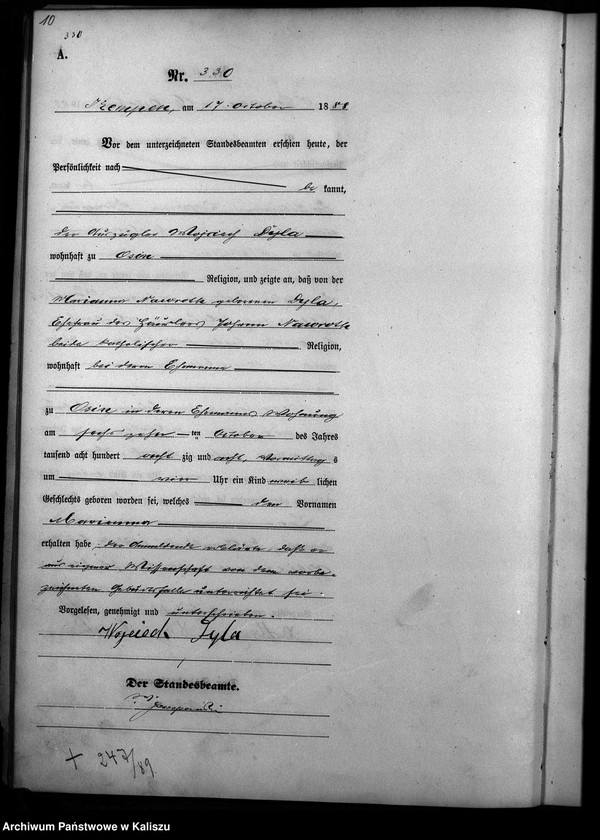 10
330
A.
Nr. 330
Kempen, am 17. October 1888
Vor dem unterzeichneten Standesbeamten erschien heute, der
Persönlichkeit nach
be kannt,
der Auszügler Wojciech Dyla
wohnhaft zu Osin
Religion, und zeigte an, daß von der
Marianna Nawrotke geborenen Dyla,
Ehefrau des Häuslers Johann Nawrotke
beide katholischer Religion,
wohnhaft bei ihrem Ehemanne
zu Osin in ihres Ehemannes Wohnung
am sechszehnten October des Jahres
tausend acht hundert acht zig und acht, Vormittags
um Uhr ein Kind weib lichen
Geschlechts geboren worden sei, welches den Vornamen
Marianna
erhalten habe. Der Anmeldende erklärte, daß er
aus eigener Wissenschaft von dem vorbe-
zeichneten Geburtsfalle unterrichtet sei.
Vorgelesen, genehmigt und unterschrieben.
Wojciech Dyla
Der Standesbeamte.
+ 247/89
Archiwum Państwowe w Kaliszu